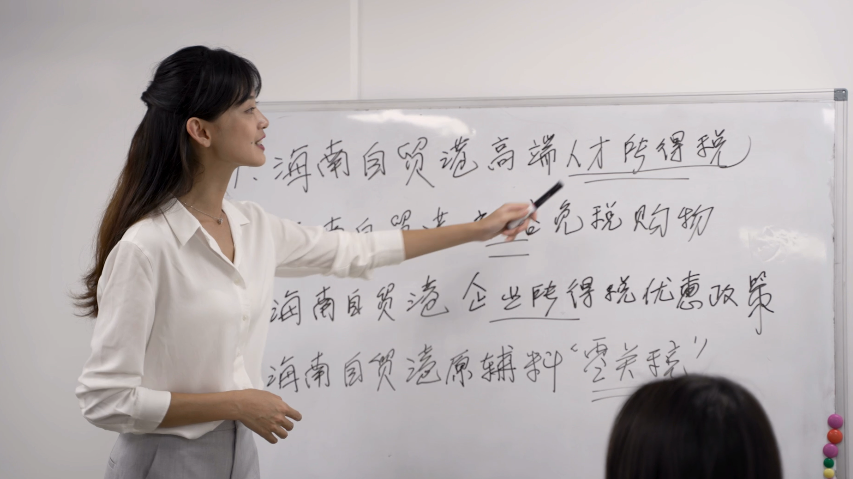 1、海南自贸港高端人才所得税
南自贸港 免税购物
海南自贸港企业所得税优惠政策
海南自贸港原辅料“零关税”